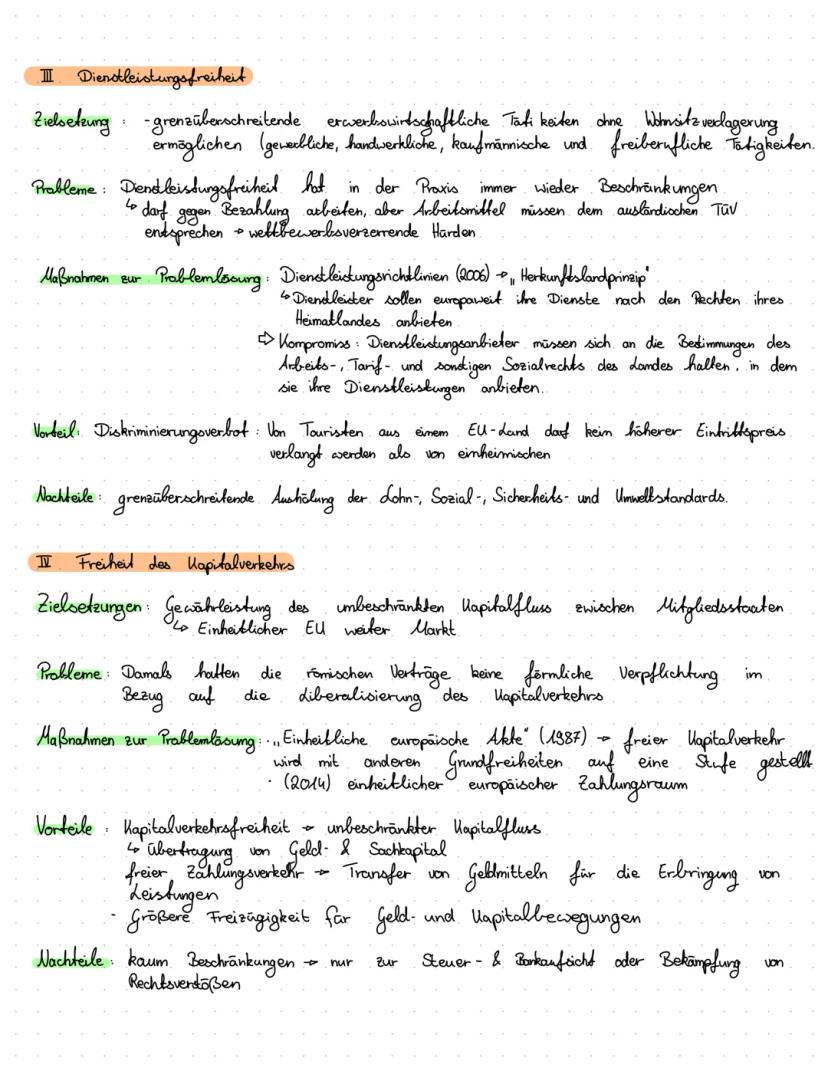 III Dienstleistungsfreiheit
Zielsetzung : - grenzüberschreitende erwerbswirtschaftliche Tätikeiten ohne Wohnsitzverlagerung
ermöglichen (gewerbliche, handwerkliche, kaufmännische und freiberufliche Tätigkeiten.
Probleme : Dienstleistungsfreiheit hat in der Praxis immer wieder Beschränkungen
↳ darf gegen Bezahlung arbeiten, aber Arbeitsmittel müssen dem ausländischen TÜV
entsprechen → wettbewerbsverzerrende Hürden
Maßnahmen zur Problemlösung : Dienstleistungsrichtlinien (2006) → „Herkunftslandprinzip"
↳ Diendleister sollen europaweit ihre Dienste nach den Rechten ihres
Heimatlandes anbieten
⇨ Kompromiss : Dienstleistungsanbieter müssen sich an die Bestimmungen des
Arbeits-, Tarif- und sonstigen Sozialrechts des Landes halten, in dem
sie ihre Dienstleistungen anbieten.
Vorteil: Diskriminierungsverbot : Von Touristen aus einem EU-Land darf kein höherer Eintrittspreis
verlangt werden als von einheimischen
Nachteile : grenzüberschreitende Aushölung der Lohn-, Sozial-, Sicherheits- und Umweltstandards.
IV Freiheit des Kapitalverkehrs
Zielsetzungen : Gewährleistung des umbeschränkten Kapitalfluss zwischen Mitgliedsstaaten
↳ Einheitlicher EU weiter Markt
Probleme : Damals hatten die römischen Verträge keine förmliche Verpflichtung im
Bezug auf die Liberalisierung des Kapitalverkehrs
Maßnahmen zur Problemlösung : · „Einheitliche europäische Akte" (1987) → freier Kapitalverkehr
wird mit anderen Grundfreiheiten auf eine Stufe gestellt
· (2014) einheitlicher europäischer Zahlungsraum
Vorteile : Kapitalverkehrsfreiheit → unbeschränkter Kapitalfluss
↳ Übertragung von Geld- & Sachkapital
freier Zahlungsverkehr → Transfer von Geldmitteln für die Erbringung von
Leistungen
- Größere Freizügigkeit für Geld- und Kapitalbewegungen
Nachteile : kaum Beschränkungen → nur zur Steuer- & Bankaufsicht oder Bekämpfung von
Rechtsverstößen